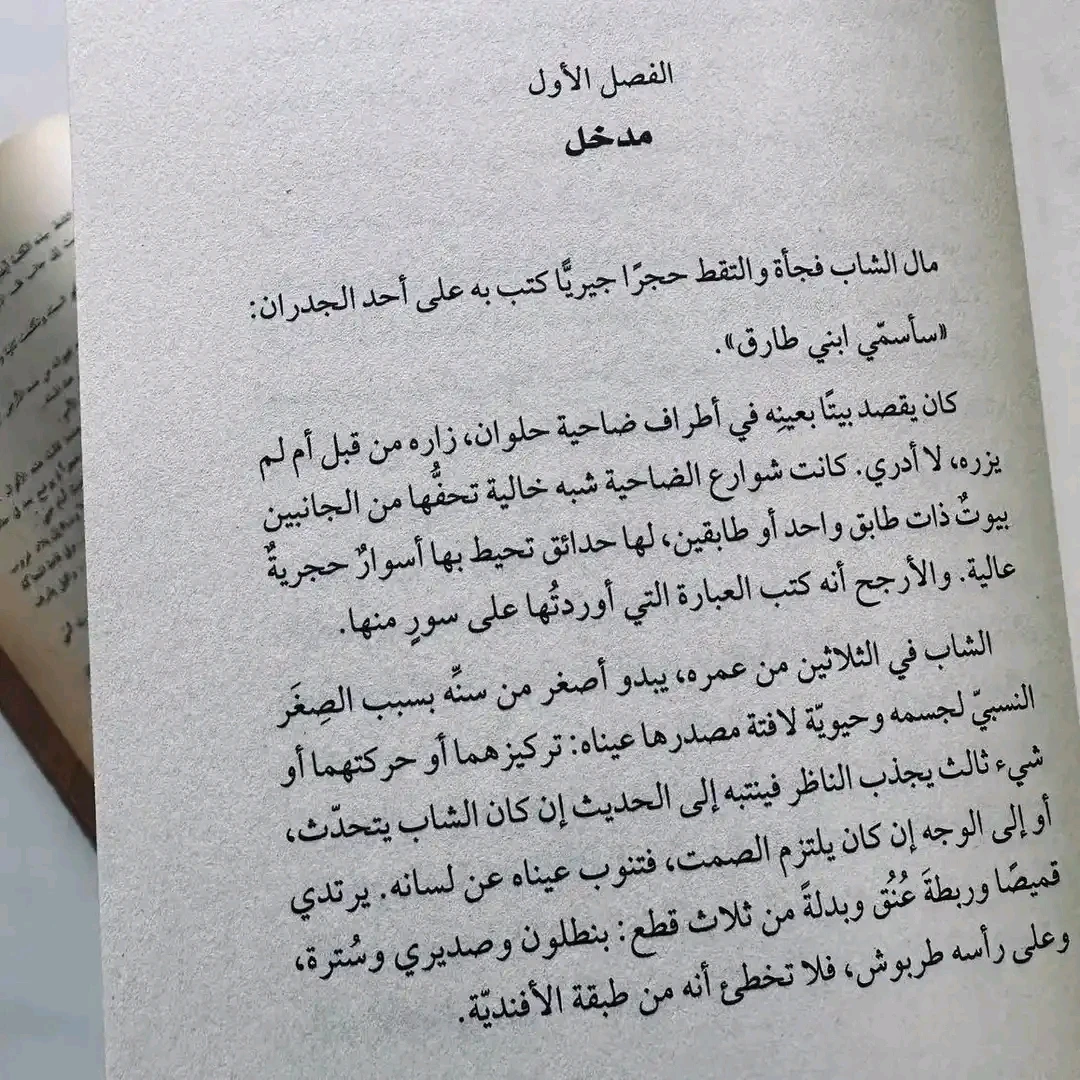 الفصل الأول
مدخل
مال الشاب فجأة والتقط حجرًا جيريًّا كتب به على أحد الجدران:
«سأسمّي ابني طارق».
كان يقصد بيتًا بعينِه في أطراف ضاحية حلوان، زاره من قبل أم لم
يزره، لا أدري. كانت شوارع الضاحية شبه خالية تحفُّها من الجانبين
بيوتٌ ذات طابق واحد أو طابقين، لها حدائق تحيط بها أسوارٌ حجريةٌ
عالية. والأرجح أنه كتب العبارة التي أوردتُها على سورٍ منها.
الشاب في الثلاثين من عمره، يبدو أصغر من سنِّه بسبب الصِغَر
النسبيّ لجسمه وحيويّة لافتة مصدرها عيناه: تركيزهما أو حركتهما أو
شيء ثالث يجذب الناظر فينتبه إلى الحديث إن كان الشاب يتحدّث،
أو إلى الوجه إن كان يلتزم الصمت، فتنوب عيناه عن لسانه. يرتدي
قميصًا وربطةَ عُنُق وبدلةً من ثلاث قطع: بنطلون وصديري وسُترة،
وعلى رأسه طربوش، فلا تخطئ أنه من طبقة الأفنديّة.